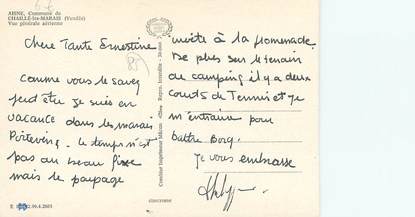 AISNE, Commune de
CHAILLÉ-les-MARAIS (Vendée)
Vue générale aérienne
Chère Tante Ernestine
comme vous le savez
peut être je suis en
vacance dans les marais
Poitevins. le temps n'est
pas au beau fixe
mais le paysage
invite à la promenade.
De plus sur le terrain
de camping il y a deux
courts de Tennis et je
m'entraîne pour
battre Borg.
je vous embrasse
Combier Imprimeur Mâcon
CIMCHROME